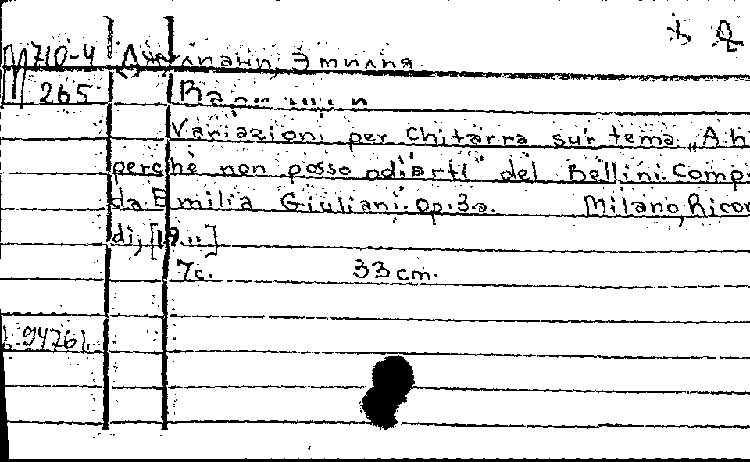 М710-4 Джулиани, Эмилия
265
Variazioni per chitarra sur tema „Ah
perchè non posso odiarti" del Bellini. Comp.
da Emilia Giuliani. Op. 3a. Milano, Ricor
di, [19..]
7c. 33 cm.